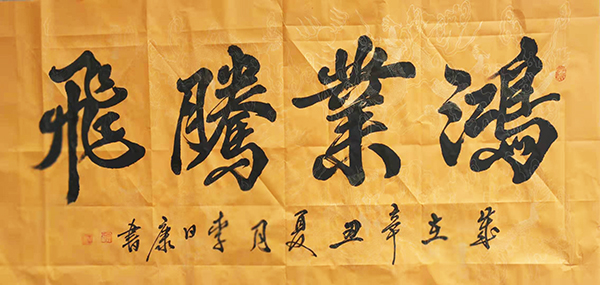 鴻業騰飛
歲在辛丑夏月李日康書